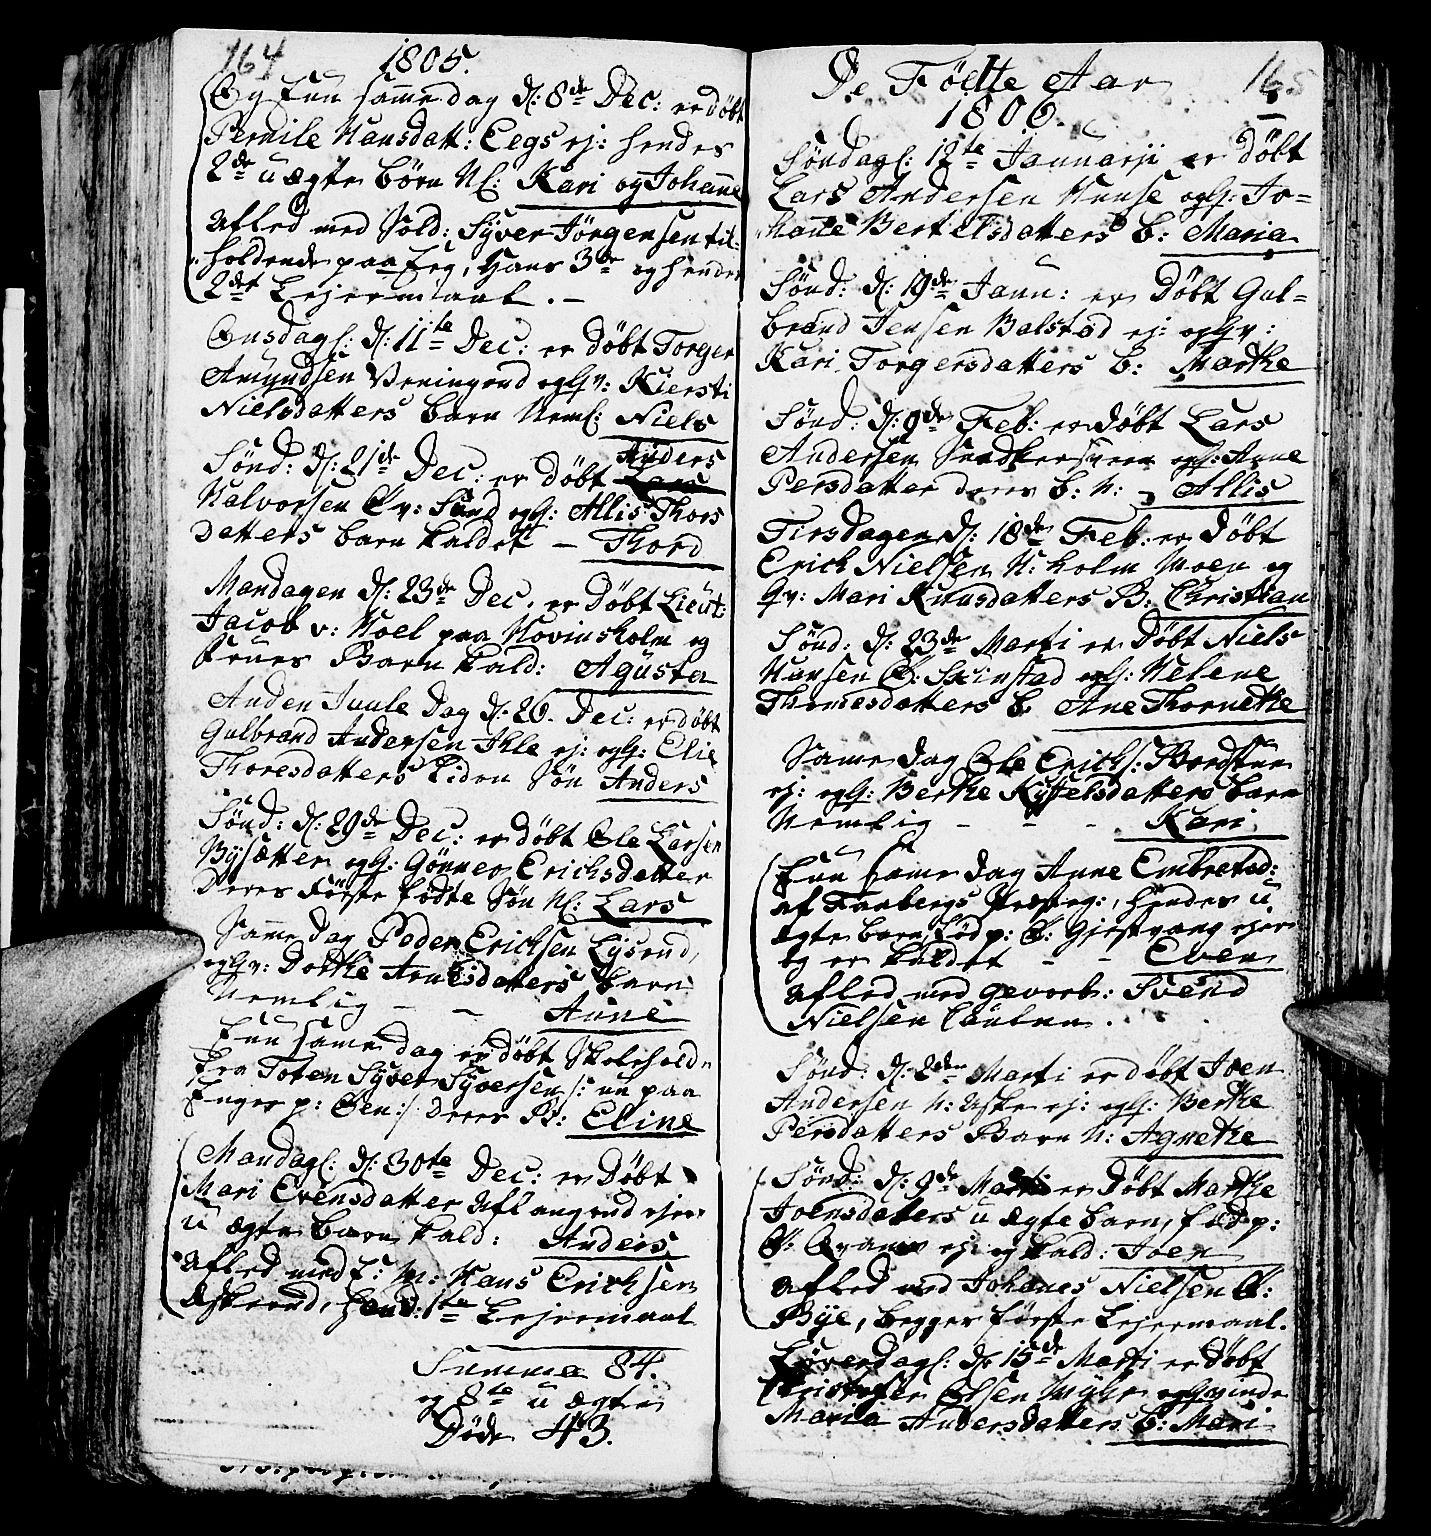 164 1805.
Og Eun samme dag d: 8de Dec: er døbt
Pernile Hansdatt: Eegs ej: hendes
2de u ægte børn Nl: Kari og Johanne
afled med Sold: Syver Jörgensen til-
holdende paa Eeg, Hans 3de og hendes
2det Lejermaal. -
Onsdagl: d: 11te Dec: er døbt Torger
Amundsen Veningrud og Gv: Kiersti
Nielsdatters barn Neml: Niels
Sønd: d: 21de Dec: er døbt Anders
Halvorsen Øv: Sund og G: Allis Thors
datters barn kaldet - Thord
Mandagen d: 23de Dec. er døbt Lieut:
Jacob v: Hoel paa Hovinsholm og
Frues Barn kald: Agusta
Anden Juule Dag d: 26. Dec: er døbt
Gulbrand Andersen Ihle ej: og G: Elie
Thoresdatters liden Søn Anders
Sønd: d: 29de Dec: er døbt Ole Larsen
Bysætter og G: Gønner Erichsdatter
Deres Første fødte Søn Nl: Lars
Samme dag Peder Erichsen Lysrud,
og Gv: Dorthe Arnesdatters barn
Nemlig - - Anne
Eun samme dag er døbt Skolehold:
fra Toten Syver Syversen /: nu paa
Enger p: Øen :/ deres B: Eline
Mandagl: d: 30te Dec: er Døbt
Mari Evensdatter Aflangrud ejer
u ægte barn kald: Anders
aflød med E: M: Hans Erichsen
Askerud, hand: 1ste Lejermaal
Summa 84.
og 8te u ægte
Døde 43.
De Födte Aar 165
1806.
Søndagl: 12te Januarji er døbt
Lars Andersen Huuse og G: Jo-
hane Bertelsdatters b: Maria
Sönd: d: 19de Janu: er Døbt Gul-
brand Jensen Balstad ej: og Gv:
Kari Torgersdatters b: Marthe
Sönd: d: 9de Feb: er døbt Lars
Andersen Snedkersveen og G: Anne
Persdatter deres b: N: Allis
Tirsdagen d: 18de Feb: er døbt
Erich Nielsen N: holm Moen og
Gv: Mari Knusdatters B: Christian
Sönd: d: 23de Marti er Döbt Niels
Hansen Ø: Skinstad og G: Helene
Thomesdatters b. Ane Thornethe
Same dag Ole Erichs: Bordstue
ej: og G: Berthe Kystelsdatters barn
Nemlig - - - Kari
Eun same dag Anne Embretsd:
af Faabergs Præsteg:, hendes u
ægte barn född p: Ø: Gjestvang ejer
og er kaldet - - Even
Afled med gevorb: Svend
Nielsen Lauben.
Sönd: d: 2den Marti er døbt Joen
Andersen N: Aske ej: og G: Berthe
Persdatters Barn N: Agnethe
Sönd: d: 9de Marti er Døbt Marthe
Joensdatters u ægte barn, född p:
Ø: Qvame ej: og kald: Joen
afled med Johanes Nielsen Ø:
Bye, begges første Lejermaal.
Löverdagl: d: 15de Marti er Døbt
Christopher Olsen Myhr og Qvinde
Maria Andersdatters b: Mari